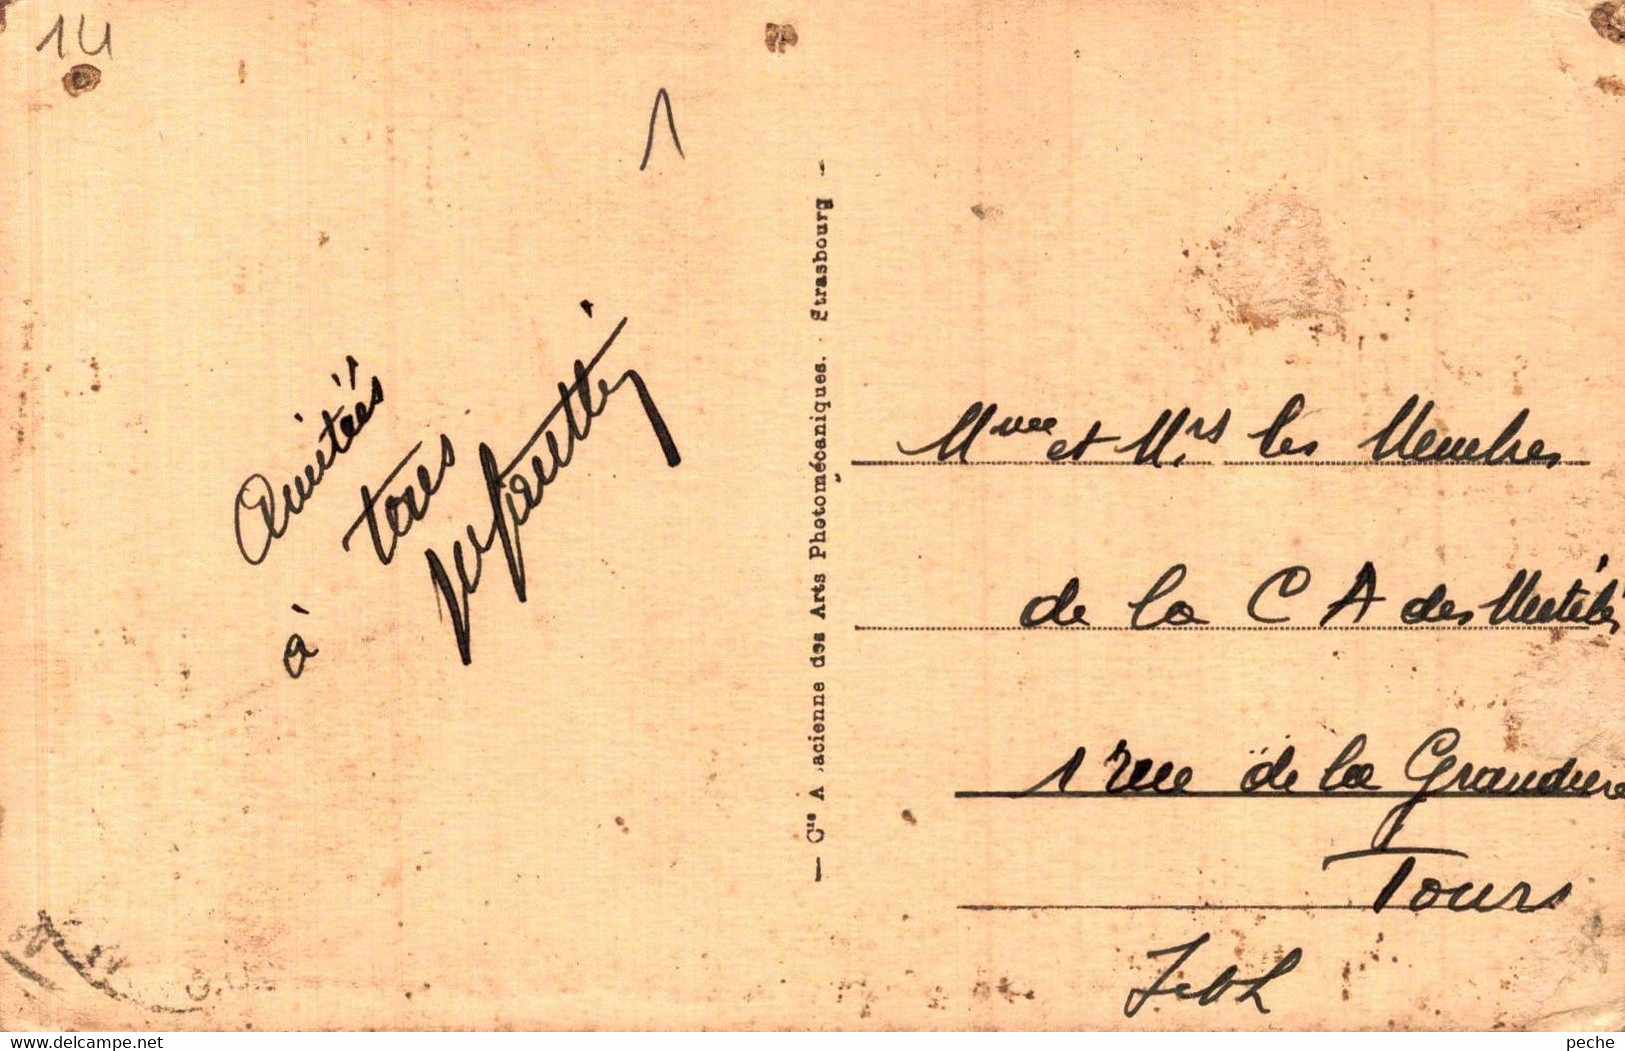 14
1
Amitiés
à tous
— Cie A sacienne des Arts Photomécaniques. Strasbourg —
Mme et Mrs les Membres
de la C A des Mutilés
1 rue de la Grandiere
Tours
I et L
peche